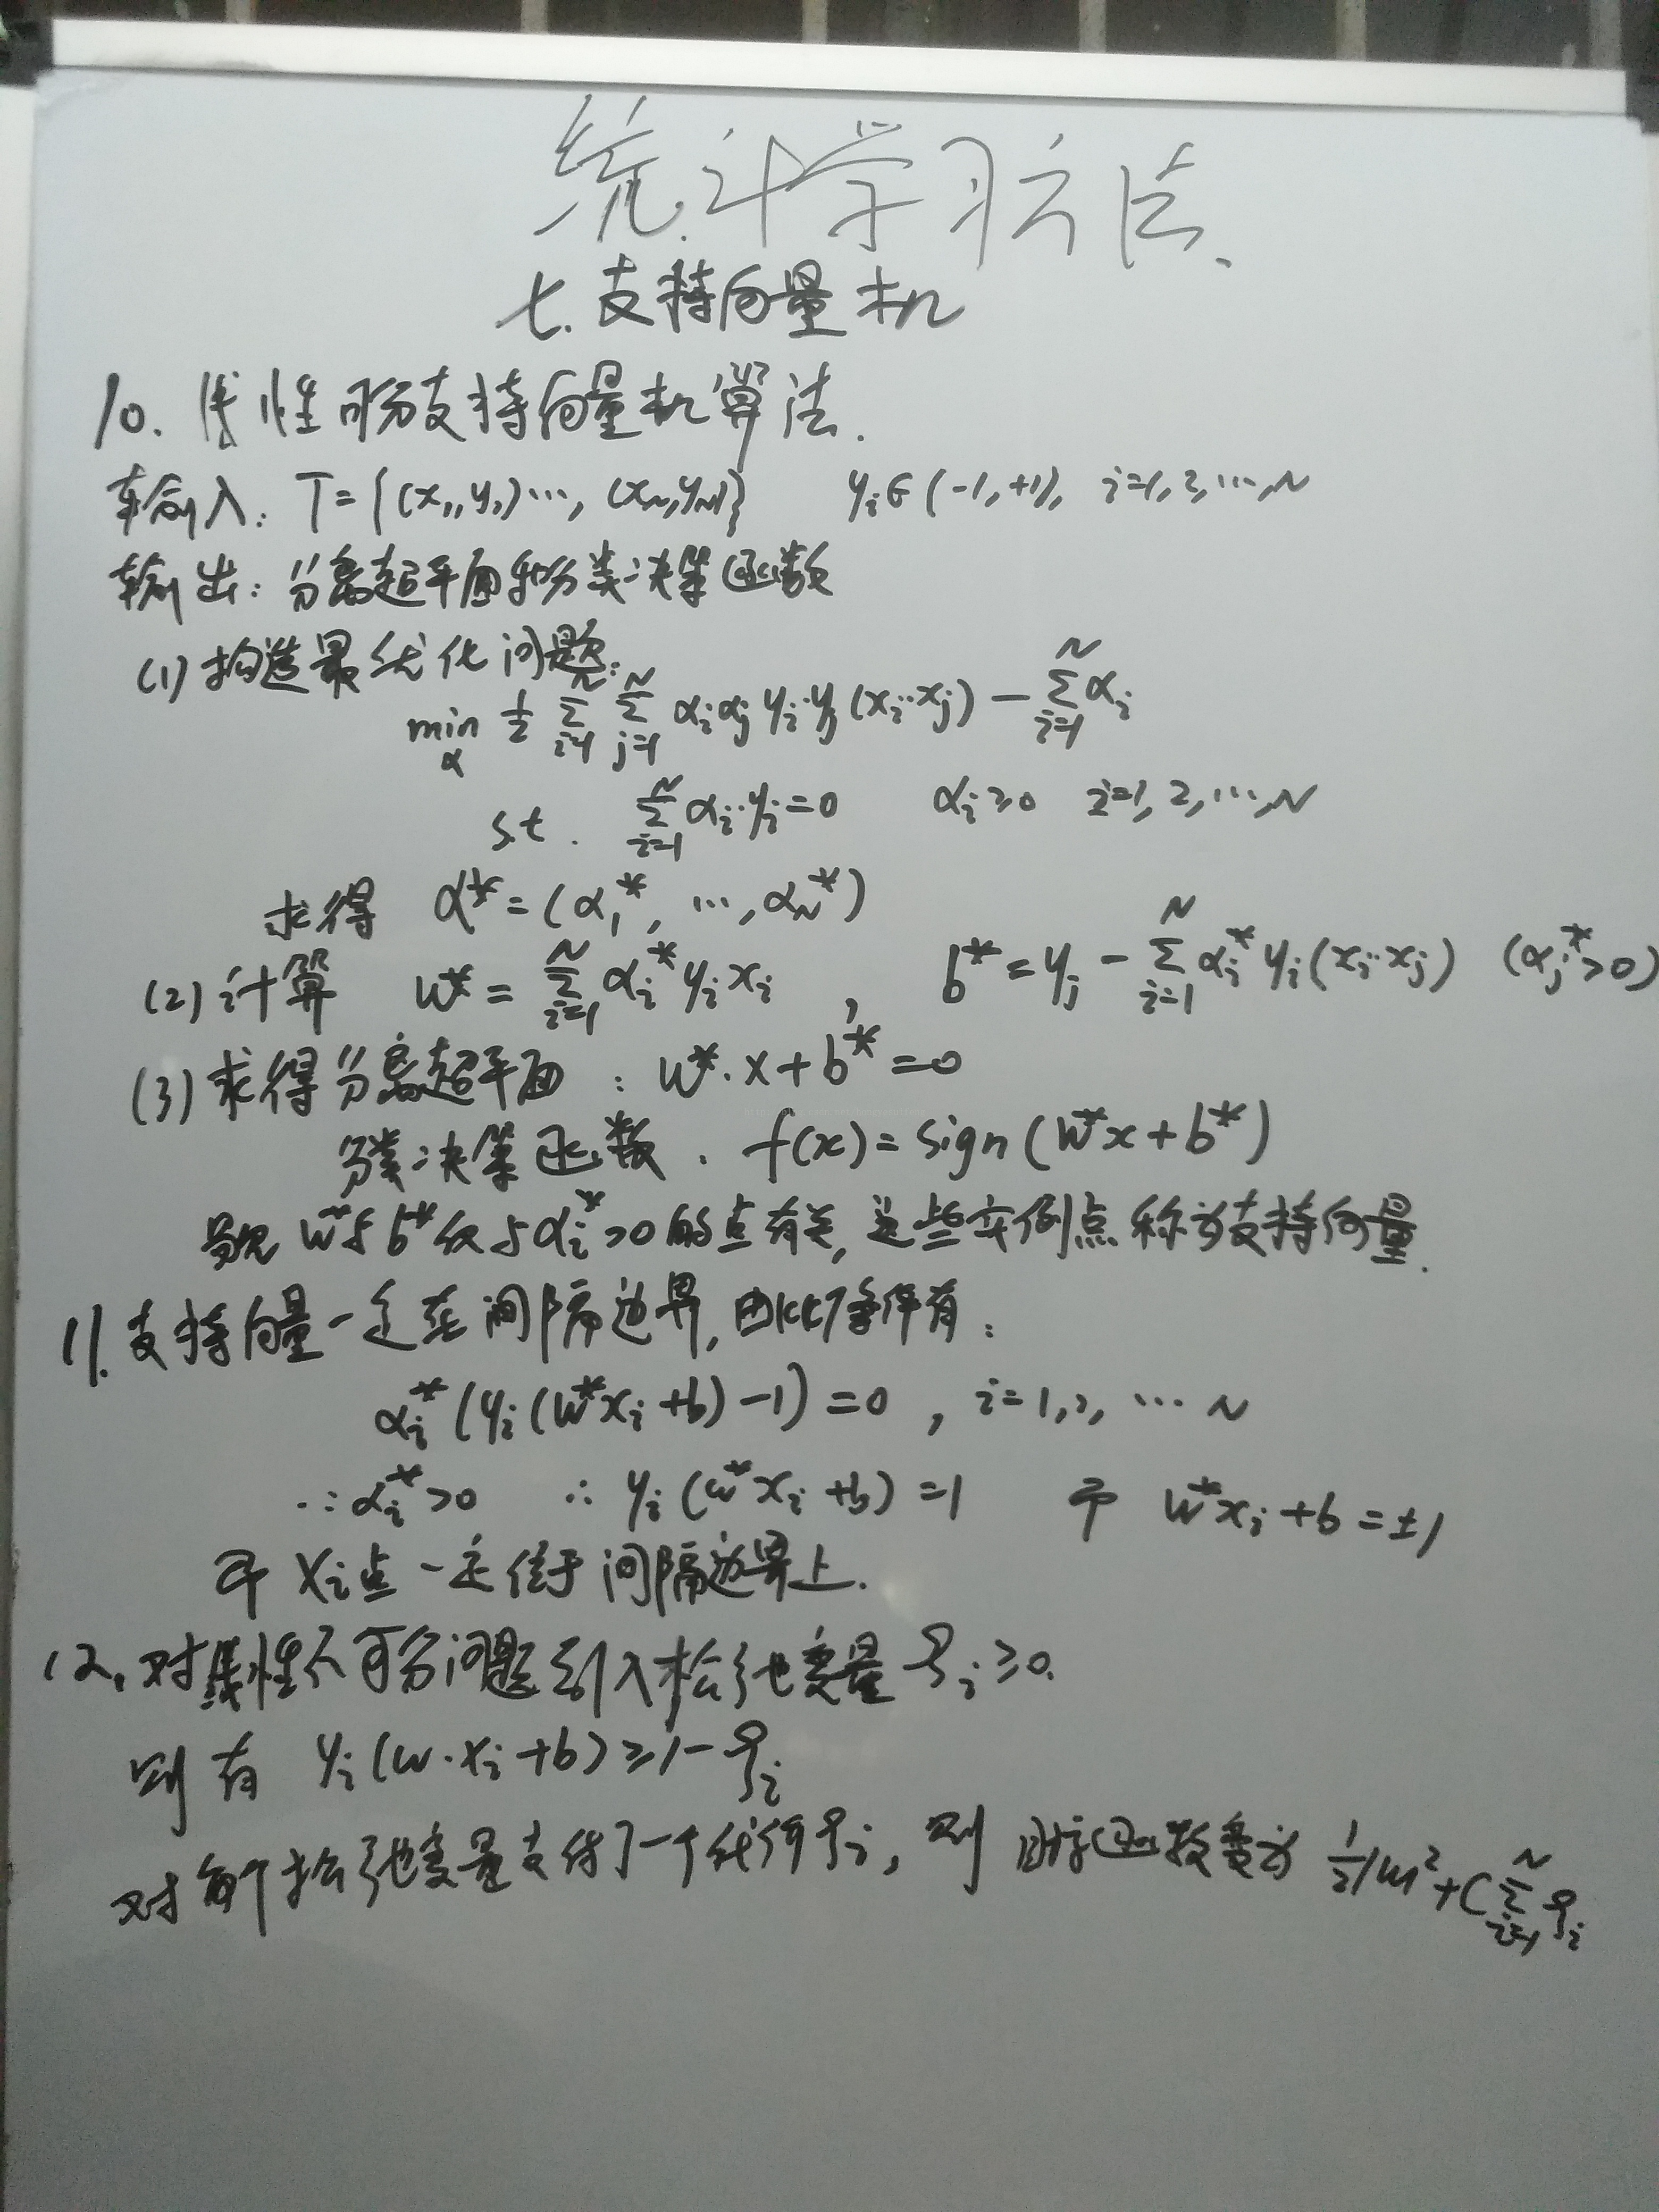 统计学习方法.
七.支持向量机
10.线性可分支持向量机算法.
输入: T={(x₁,y₁)…, (x_N,y_N)} yᵢ∈(-1,+1), i=1,2,…,N
输出: 分离超平面和分类决策函数
(1)构造最优化问题:
min_α ½ Σ_{i=1}^N Σ_{j=1}^N αᵢαⱼyᵢyⱼ(xᵢ·xⱼ) - Σ_{i=1}^N αᵢ
s.t. Σ_{i=1}^N αᵢ·yᵢ=0 αᵢ≥0 i=1,2,…,N
求得 α*=(α₁*, …, α_N*)
(2)计算 w*=Σ_{i=1}^N αᵢ*yᵢxᵢ , b*=yⱼ-Σ_{i=1}^N αᵢ*yᵢ(xᵢ·xⱼ) (αⱼ*>0)
(3)求得分离超平面: w*·x+b*=0
分类决策函数. f(x)=sign(w*x+b*)
易见 w*与b*仅与αᵢ*>0的点有关,这些实例点称为支持向量.
11.支持向量一定在间隔边界,由KKT条件有:
αᵢ*(yᵢ(w*xᵢ+b)-1)=0, i=1,2, … N
∵αᵢ*>0 ∴yᵢ(w*xᵢ+b)=1 即 w*xᵢ+b=±1
即 xᵢ点一定位于间隔边界上.
12.对线性不可分问题引入松弛变量ξᵢ≥0.
则有 yᵢ(w·xᵢ+b)≥1-ξᵢ
对每个松弛变量支付了一个代价ξᵢ, 则目标函数变为 ½|w|²+CΣ_{i=1}^N ξᵢ